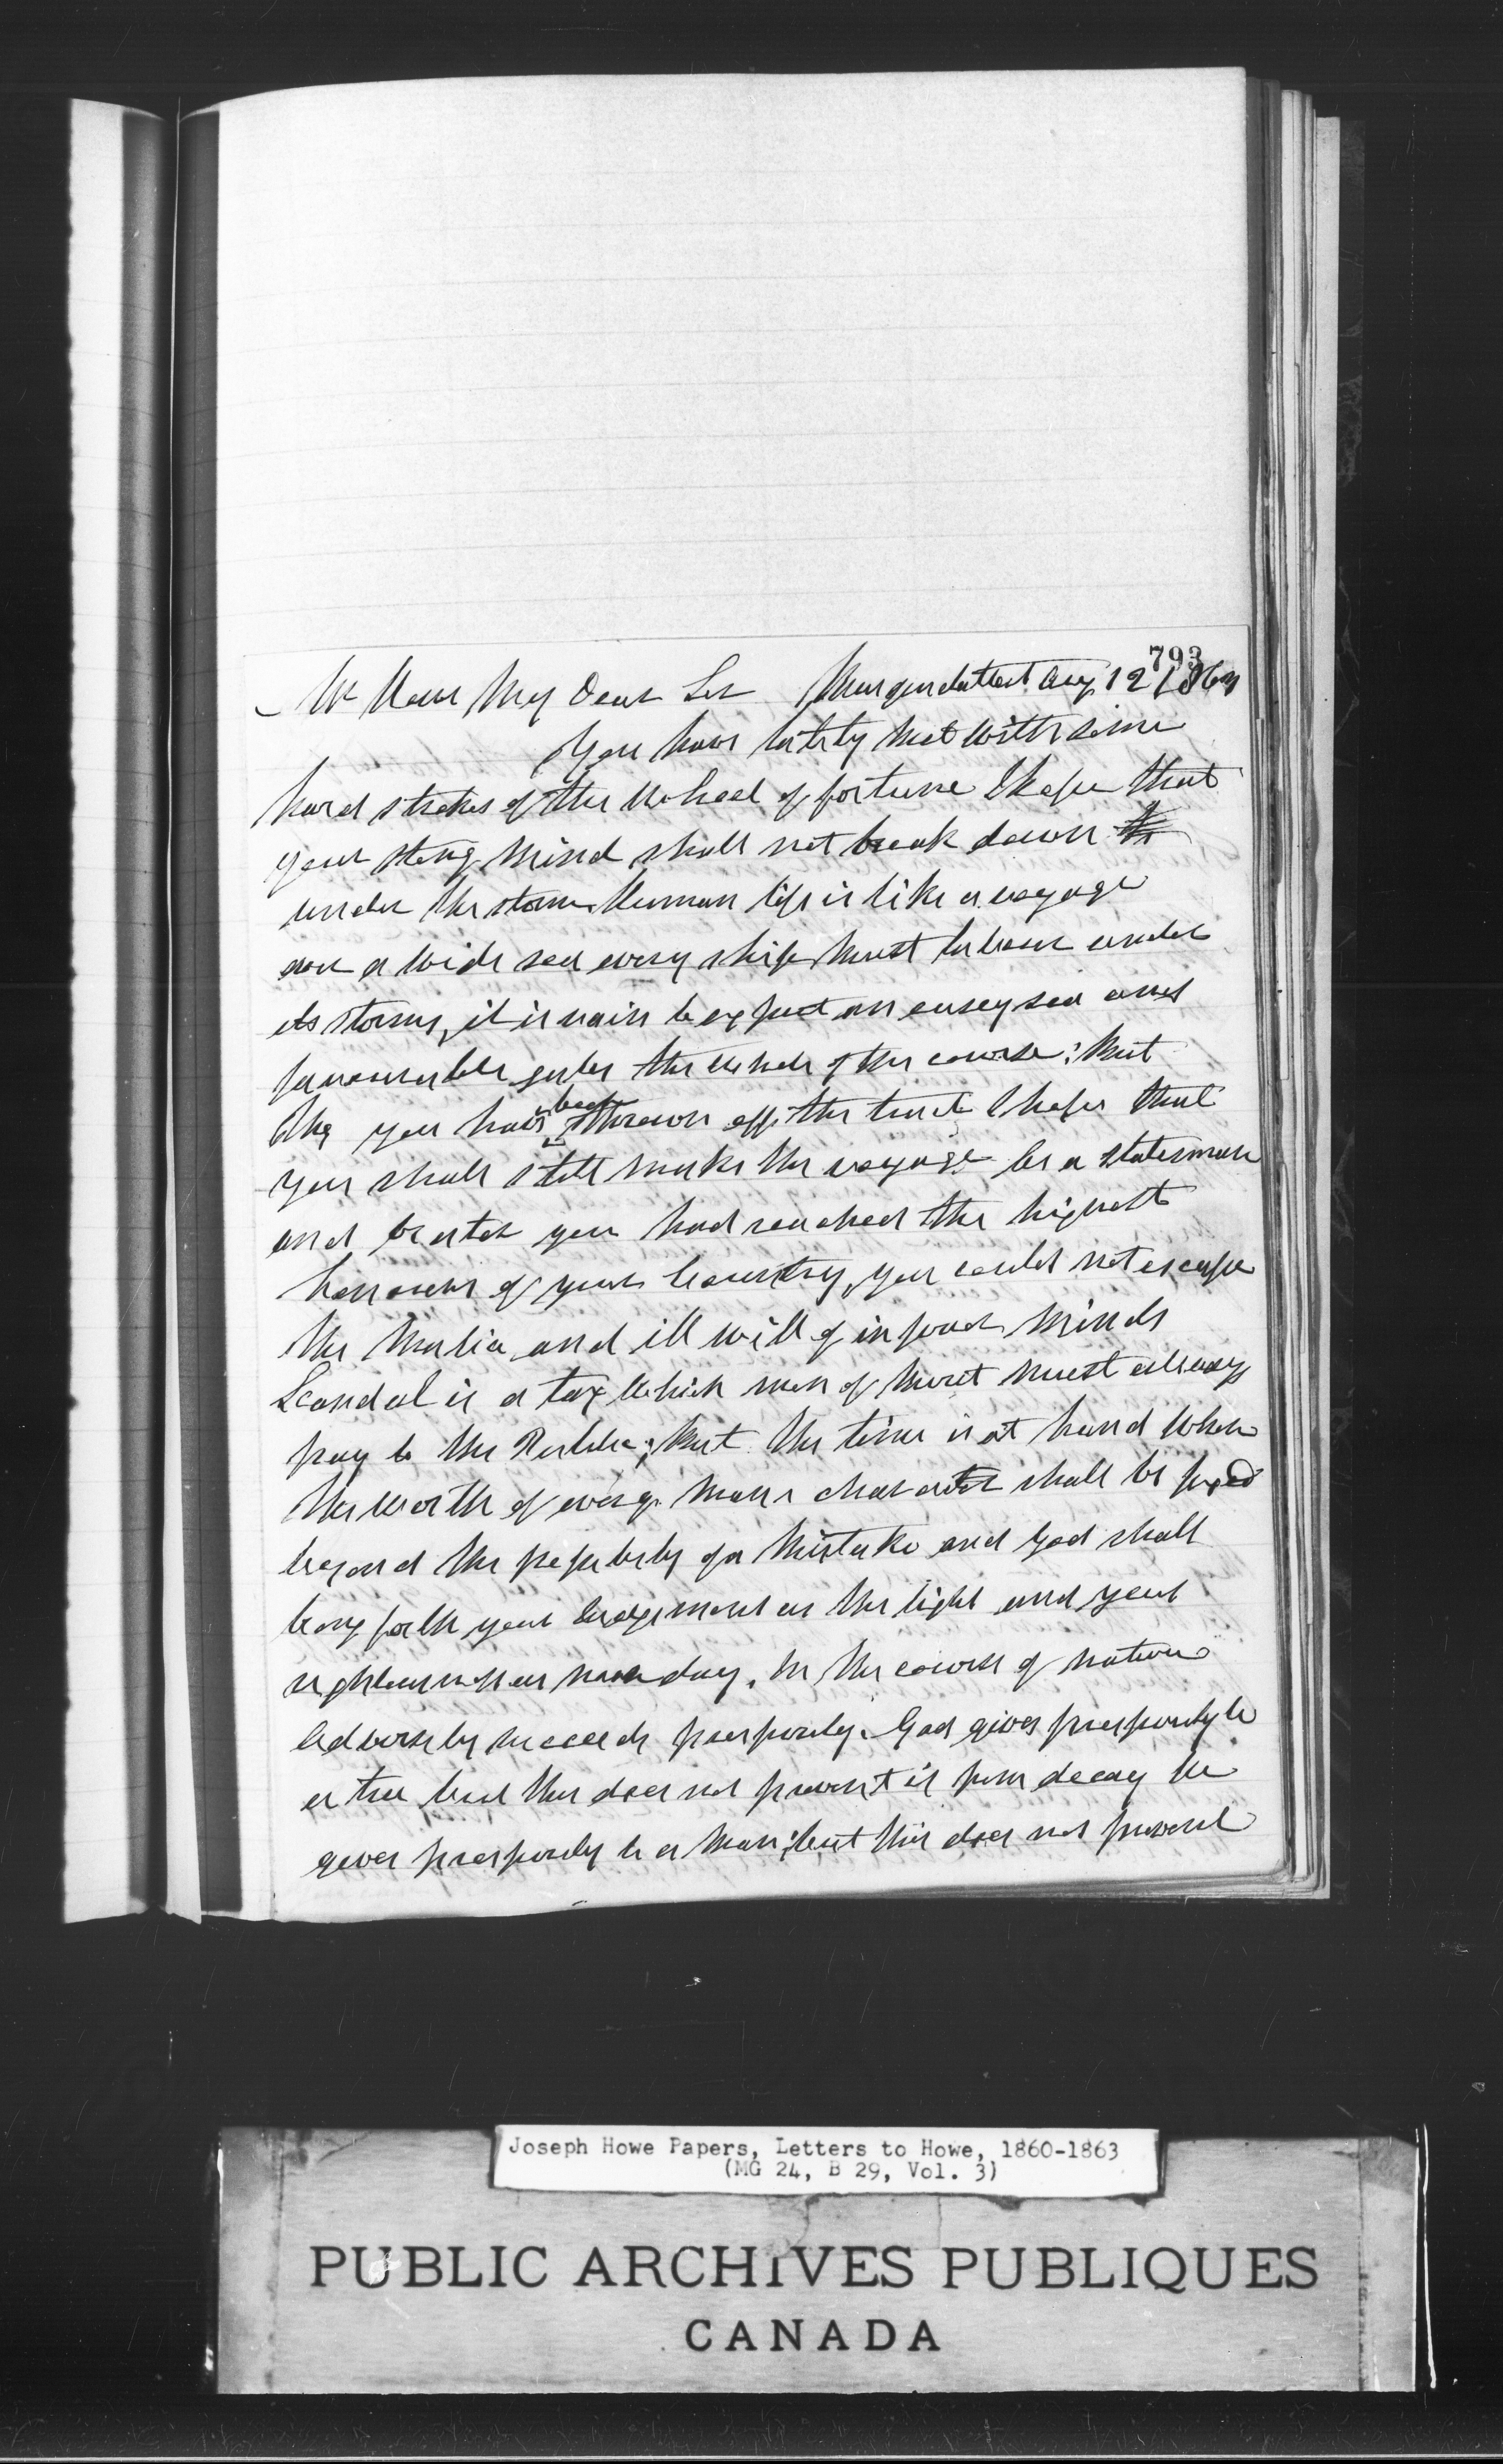 793
Mr Howe My Dear Sir Aug 12 1863
You have lately met with some
hard strokes of the wheel of fortune I hope that
your strong mind shall not break down
under the storm Human life is like a voyage
on a wide sea every ship must labour under
its storms, it is vain to expect an easey sea and
favourable gales the whole of the course: But
tho you have been thrown off the track I hope that
you shall still make the voyage as a statesman
and orator you had reached the highest
honours of your Country, you could not escape
the malice and ill will of inferior minds
Scandal is a tax which men of merit must always
pay to the Public; But the time is at hand when
the worth of every mans character shall be fixed
beyond the possibility of a mistake and God shall
bring forth your Judgement as the light and your
righteousness as noonday. In the course of nature
adversity succeeds prosperity. God gives prosperity to
a tree but this does not prevent it from decay He
gives prosperity to a man; but this does not prevent
Joseph Howe Papers, Letters to Howe, 1860-1863
(MG 24, B 29, Vol. 3)
PUBLIC ARCHIVES PUBLIQUES
CANADA